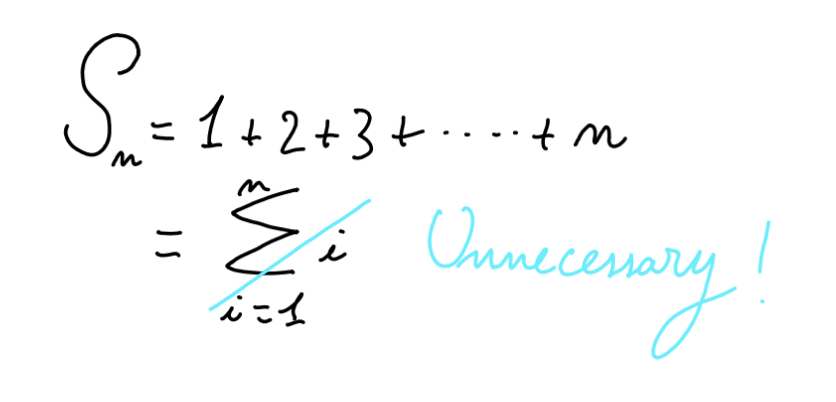 Sn = 1 + 2 + 3 + ..... + n
= n∑i=1 i Unnecessary !